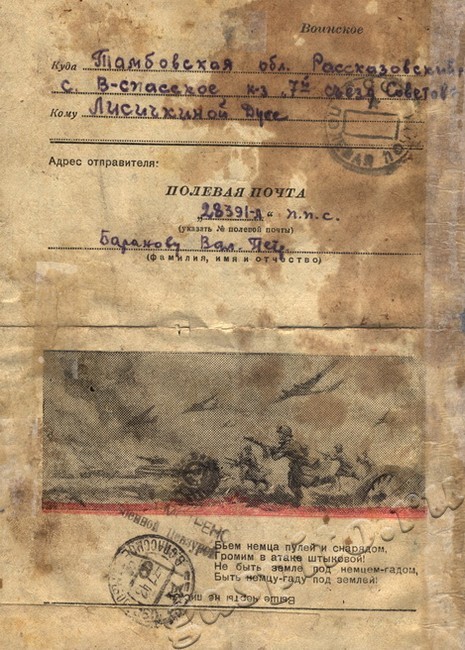 Воинское
Куда Тамбовская обл. Рассказовский
с. В-спасское к-з "7й съезд Советов
Кому Лисичкиной Дусе
Адрес отправителя:
ПОЛЕВАЯ ПОЧТА
"28391-д" п.п.с.
(указать № полевой почты)
Баранову Вал. Пет
(фамилия, имя и отчество)
Военной Цензурой
Бьем немца пулей и снарядом,
Громим в атаке штыковой!
Не быть земле под немцем-гадом,
Быть немцу-гаду под землей!
Выше черты не